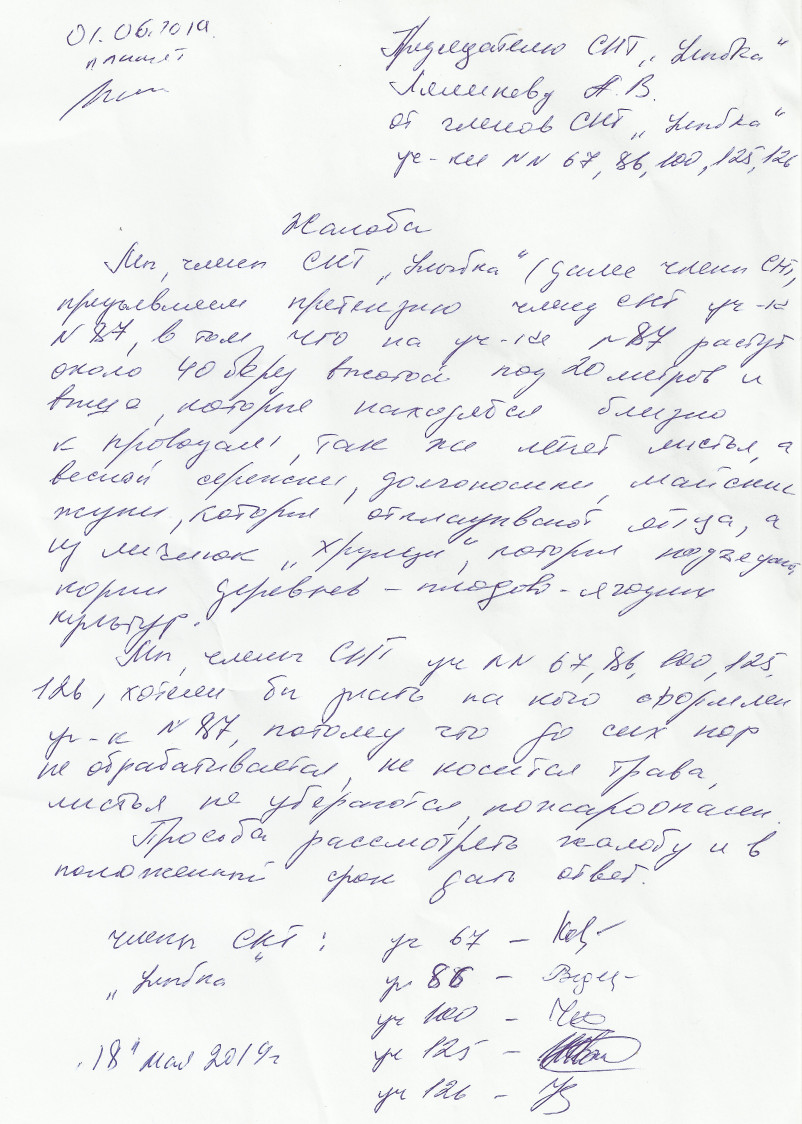 01.06.2019.
принят
Председателю СНТ „Улыбка“
Лямикеву А. В.
от членов СНТ „Улыбка“
уч-ки NN 67, 86, 100, 125, 126
Жалоба
Мы, члены СНТ „Улыбка“ (далее члены СНТ),
предъявляем претензию члену СНТ уч-к
N 87, в том что на уч-ке N 87 растут
около 40 берез высотой под 20 метров и
выше, которые находятся близко
к проводам, так же летят листья, а
весной сережки, долгоносики, майские
жуки, которые откладывают яйца, а
из личинок „хрущи“, которые подъедают
корни деревьев - плодово-ягодных
культур.
Мы, члены СНТ уч NN 67, 86, 100, 125,
126, хотели бы знать на кого оформлен
уч-к N 87, потому что до сих пор
не обрабатывается, не косится трава,
листья не убераются, пожароопасен.
Просьба рассмотреть жалобу и в
положенный срок дать ответ.
члены СНТ: уч 67 -
„Улыбка“ уч 86 -
уч 100 -
„18“ мая 2019г уч 125 -
уч 126 -